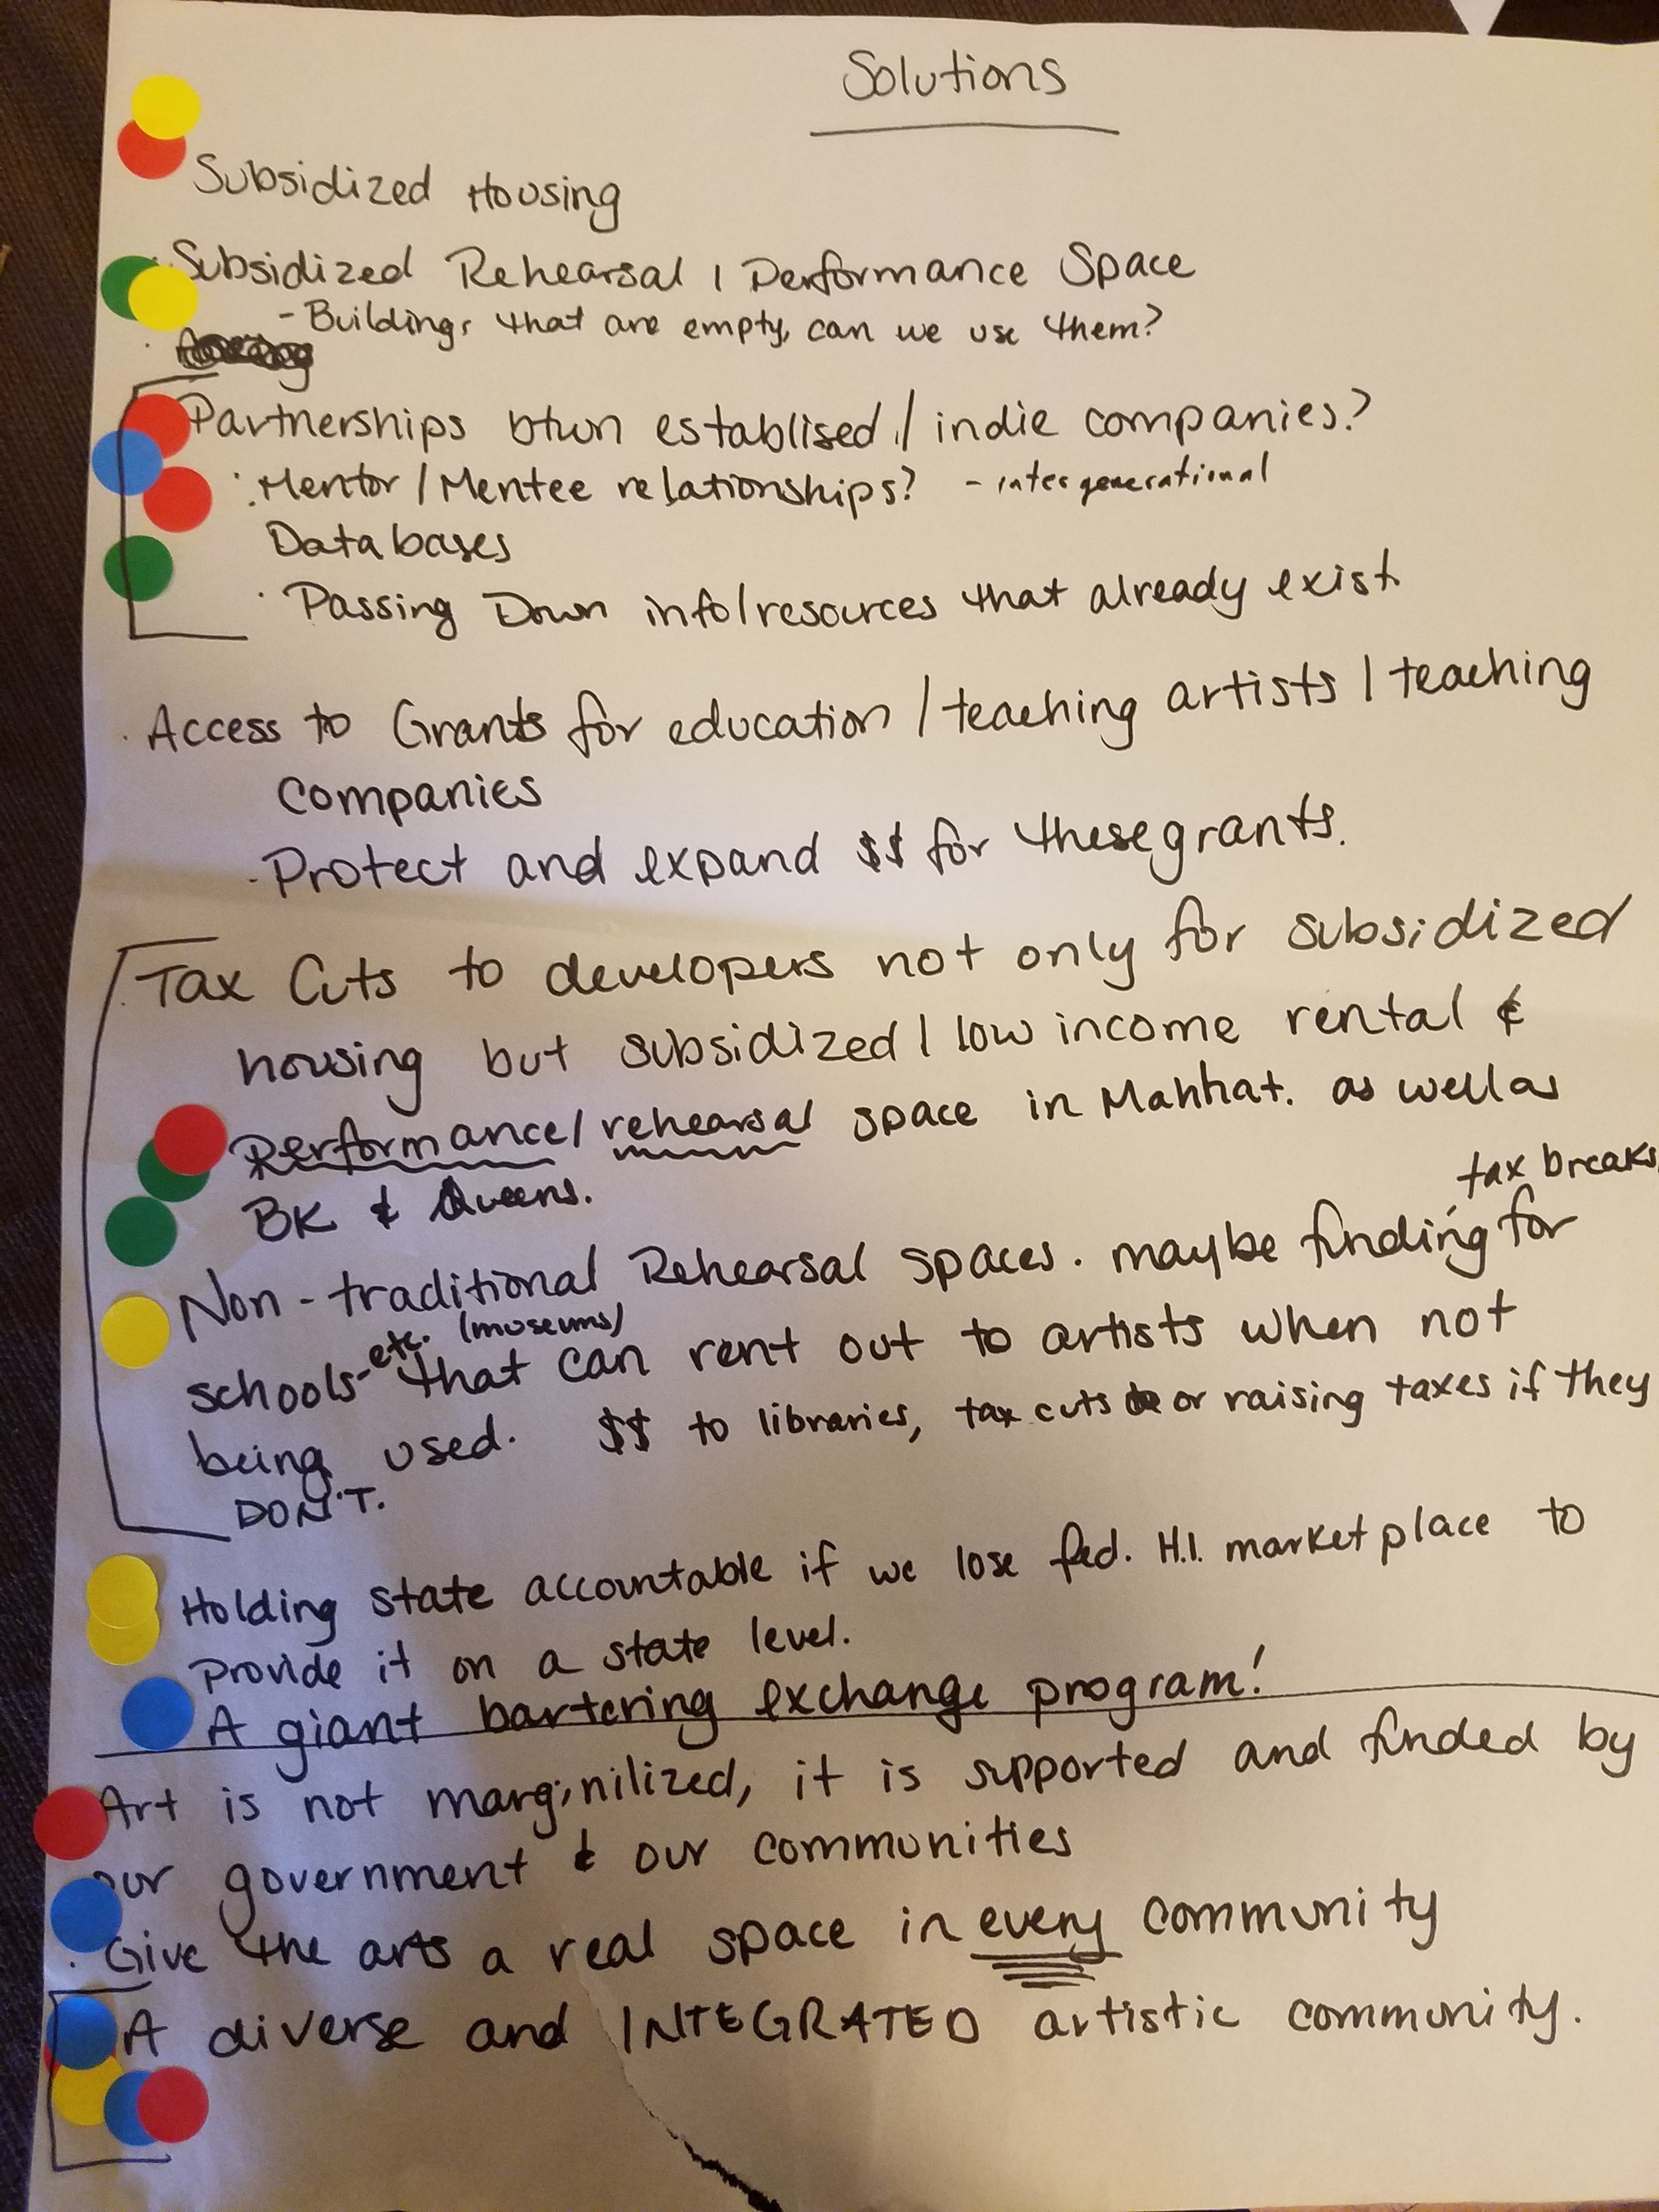 Solutions
Subsidized Housing
· Subsidized Rehearsal / Performance Space
- Buildings that are empty, can we use them?
Partnerships btwn establised / indie companies?
· Mentor / Mentee relationships? - intergenerational
Databases
· Passing Down info/resources that already exist.
· Access to Grants for education / teaching artists / teaching
companies
- Protect and expand $$ for these grants.
· Tax Cuts to developers not only for subsidized
housing but subsidized / low income rental &
Performance / rehearsal space in Manhat. as well as
BK & Queens.
tax breaks
Non-traditional Rehearsal spaces. maybe funding for
schools - etc. (museums) that can rent out to artists when not
being used. $$ to libraries, tax cuts or raising taxes if they
DON'T.
Holding state accountable if we lose fed. H.I. marketplace to
provide it on a state level.
A giant bartering exchange program!
Art is not marginilized, it is supported and funded by
our government & our communities
· Give the arts a real space in every community
A diverse and INTEGRATED artistic community.